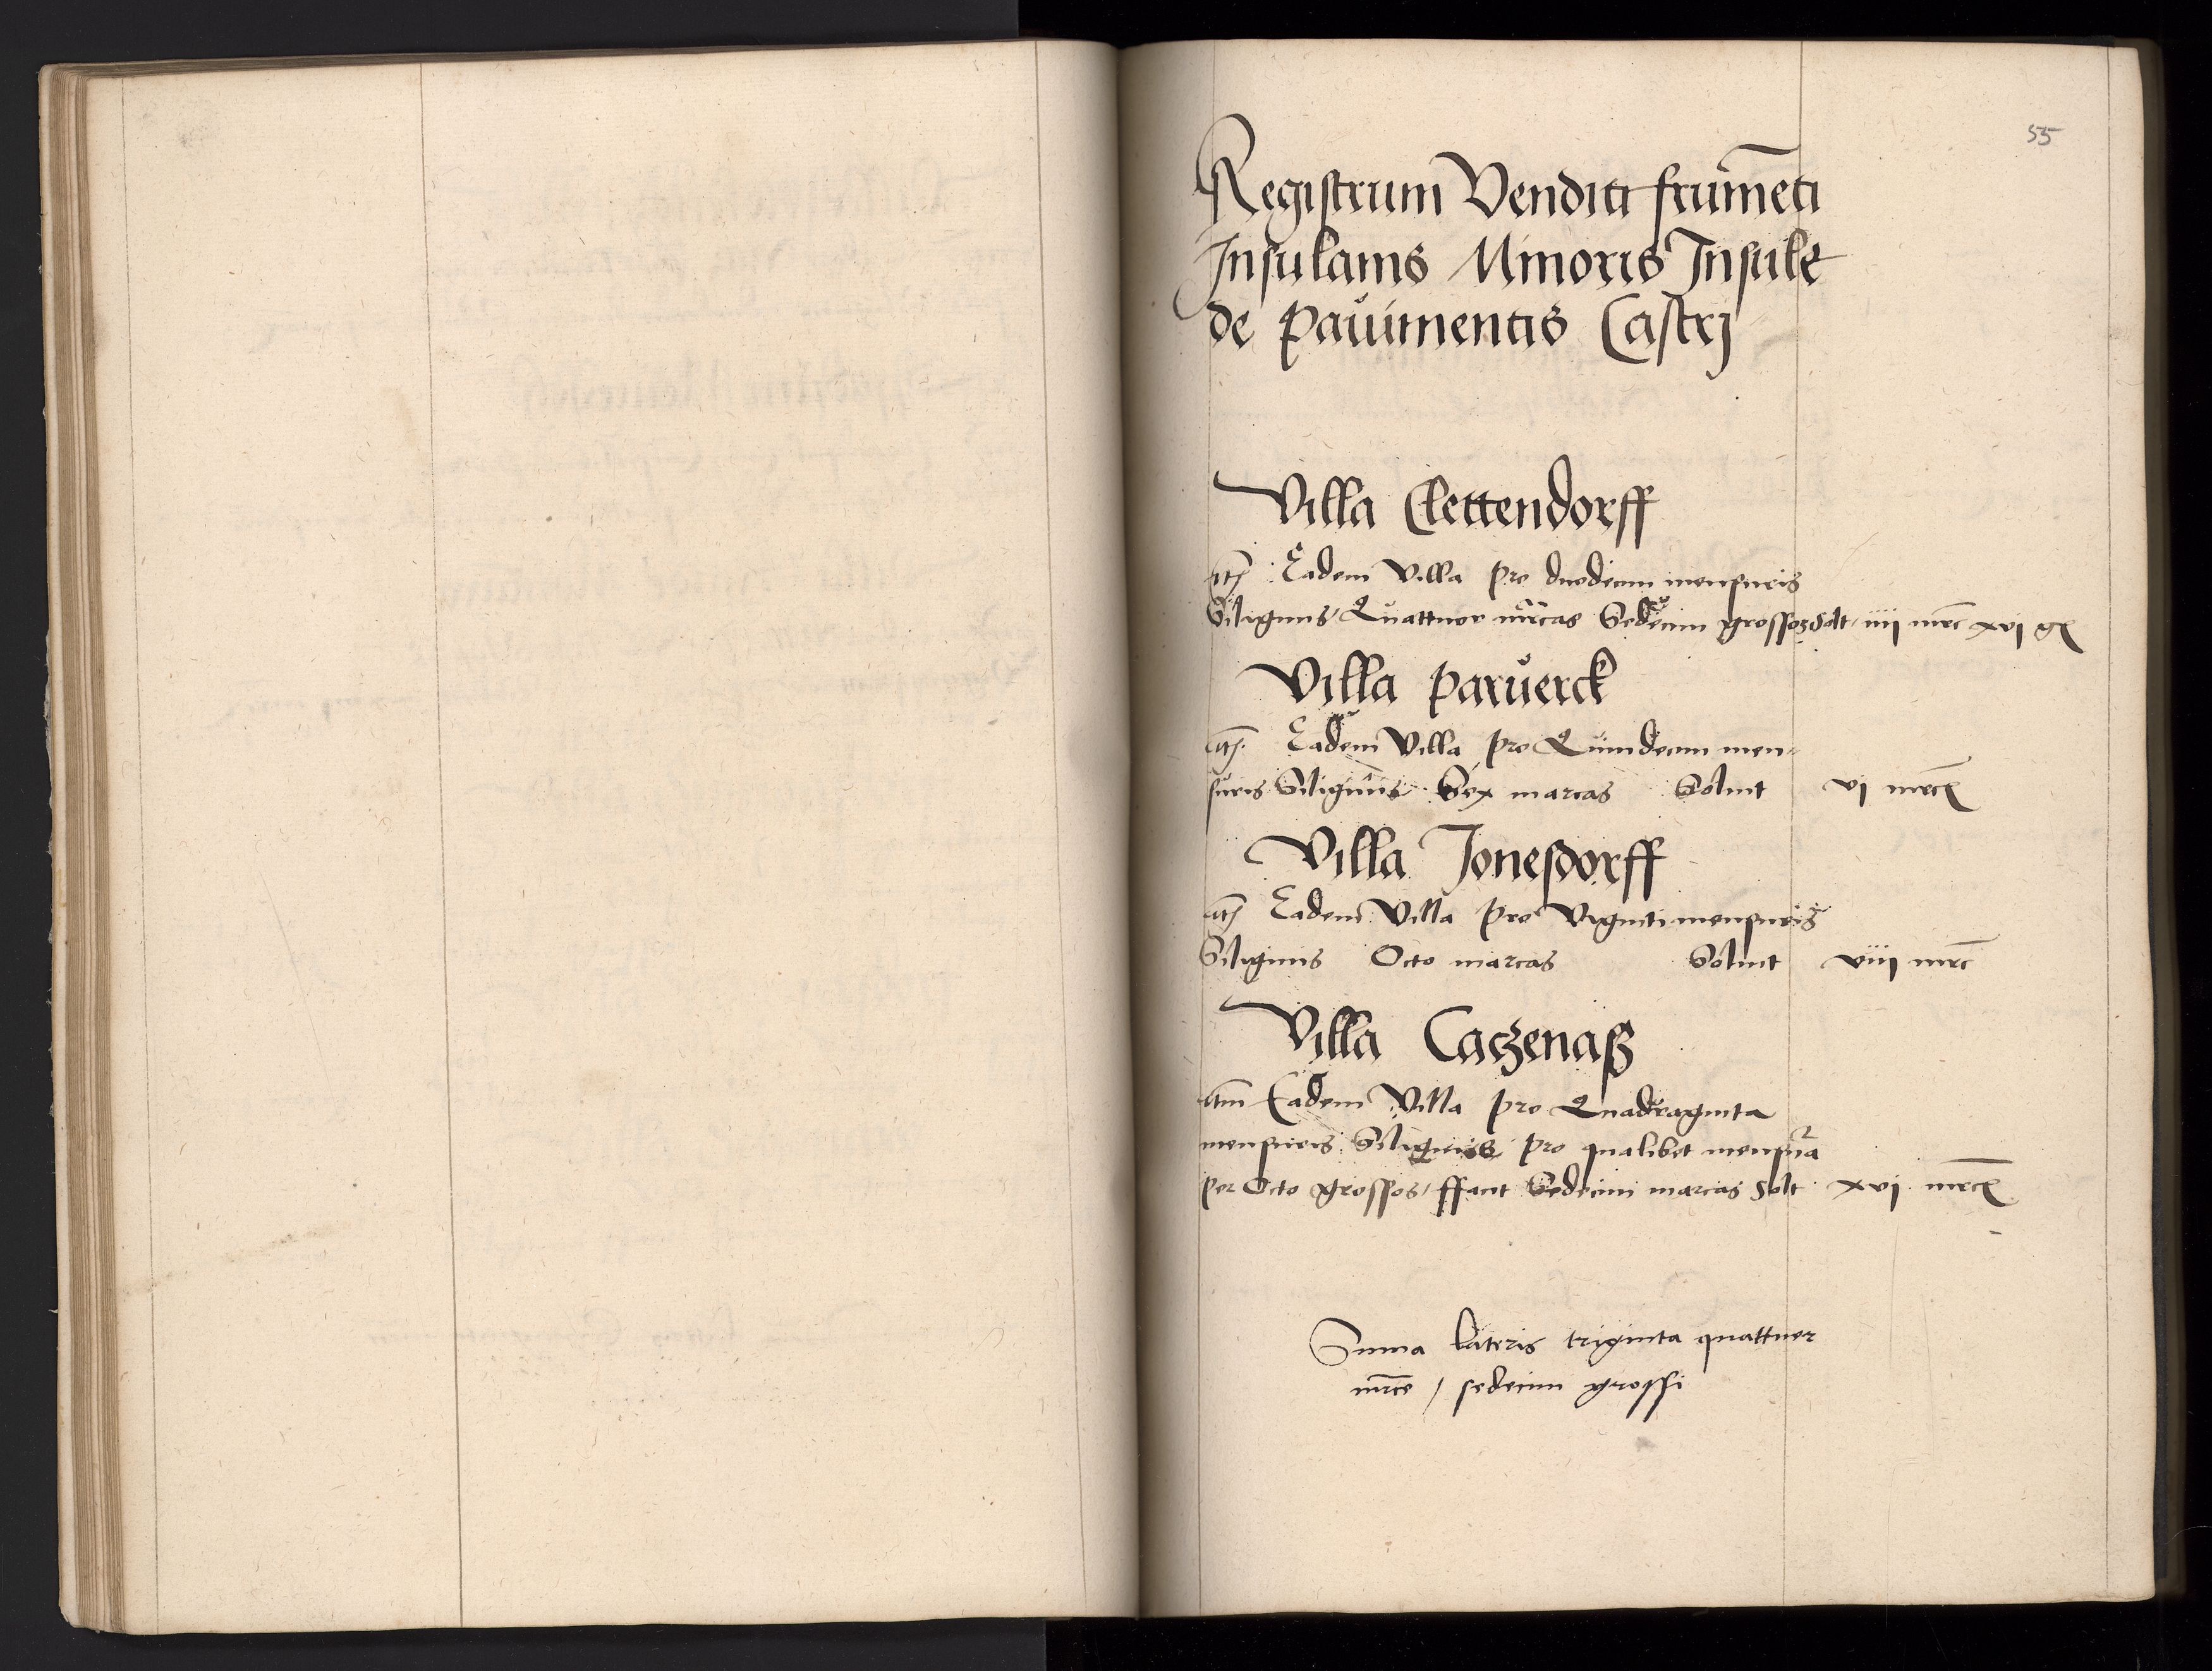 55
Registrum Venditi frumēti
Insulanis Minoris Insule
de Pavimentis Castrj
Villa Clettendorff
Itē Eadem Villa pro duodecim mensuris
Siliginis Quattuor mrcas Sedecim grossos Solt iiij mrc xvj gr
Villa Paruerck
Itē Eadem Villa pro Quindecim men-
suris Siliginis Sex marcas Soluit vj mrc
Villa Jonesdorff
Itē Eadem Villa pro Viginti mensuris
Siliginis Octo marcas Soluit viij mrc
Villa Caczenaß
Itm Eadem Villa pro Quadraginta
mensuris Siliginis pro qualibet mensura
per Octo grossos ffacit Sedecim marcas Solt xvj mrc
Suma lateris triginta quattuor
mrce / sedecim grossi